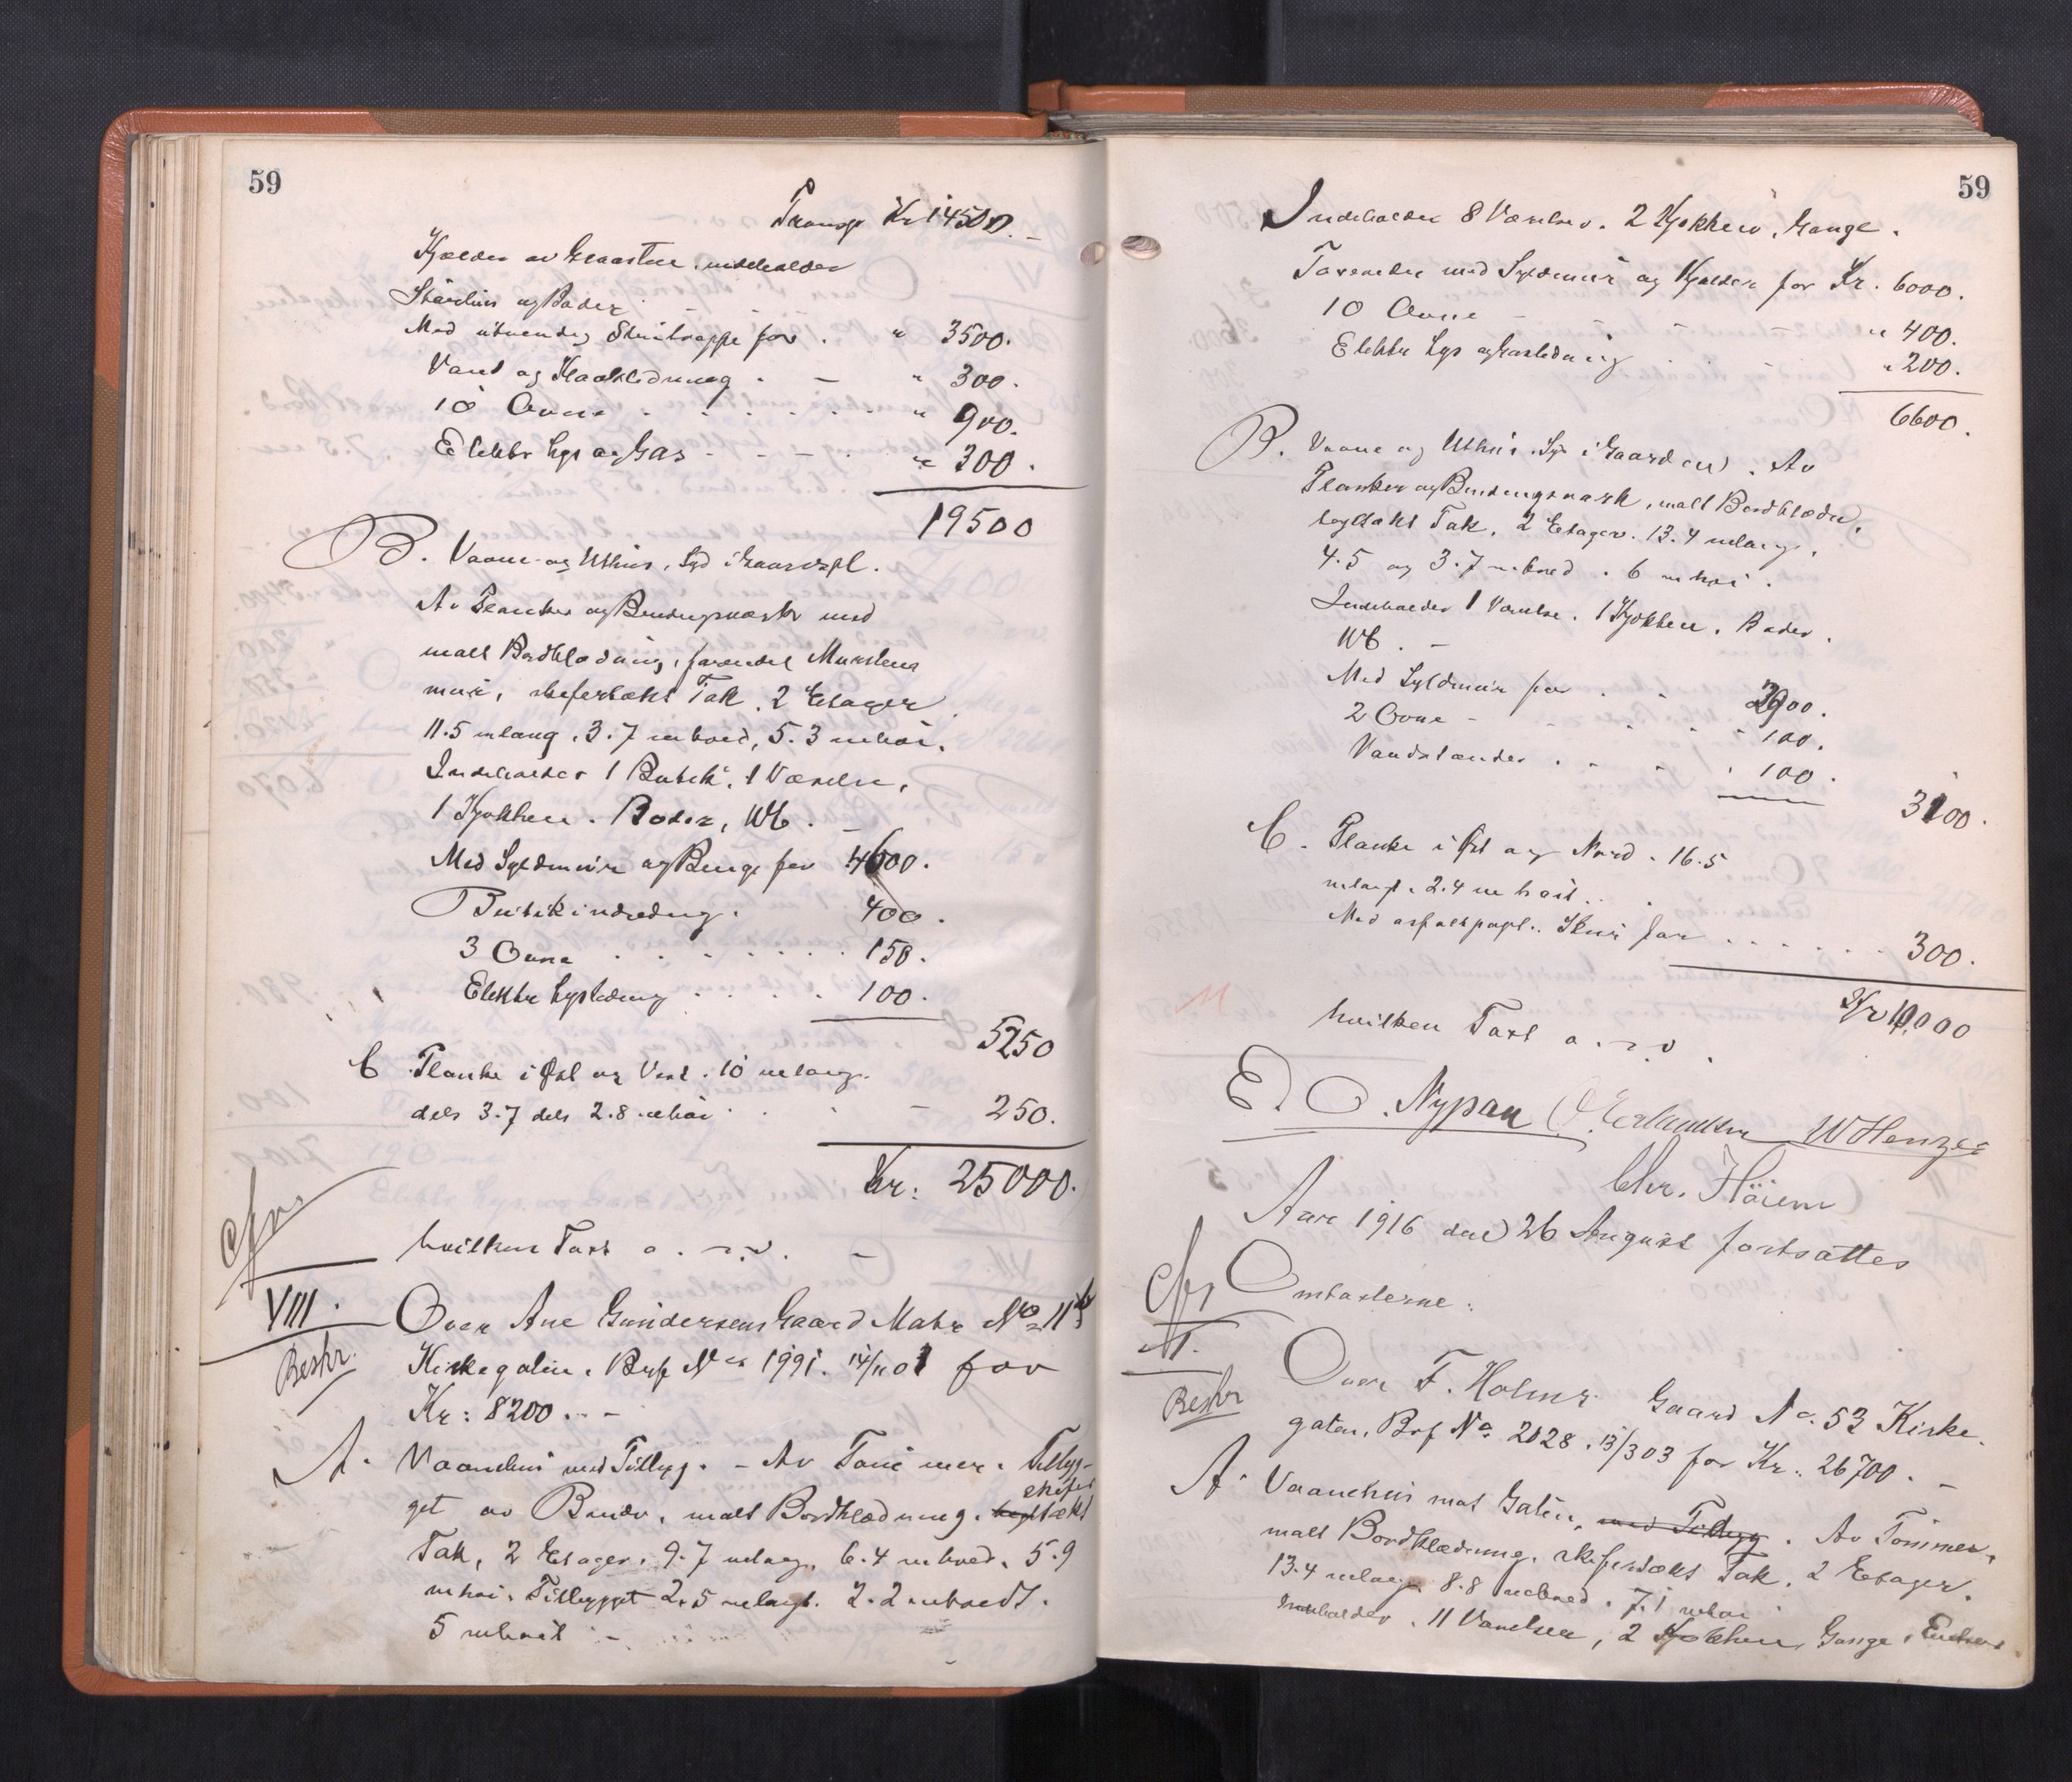 59
Transp Kr 14500.–
Kjælder av Graasten, indeholder
Skævhus og Boder
Med utvendig Stentrappe for . " 3500.
Vand og Kloakledning . – " 300.
10 Ovne . . . . . . " 900.
Elektr Lys og Gas - - – . " 300.
19500
B. Vaane og Uthus, Syd i Gaardspl.
Av Planker og Bindingsverk med
malt Bordklædning, forøvrigt Murstens
mur, skifertækt Tak. 2 Etager
11.5 m lang, 3.7 m bred, 5.3 m høi.
Indeholder 1 Butik, 1 Værelse,
1 Kjøkken. Boder, WC. –
Med Syldmur og Pipe for 4600.
Butikindredng. 400.
3 Ovne . . . . . . . 150.
Elektr Lysledning . . . . 100.
5250
C Planke i Øst og Vest. 10 m lang.
dels 3.7 dels 2.8 m høi . . – 250.
Kr: 25000.
cfr
hvilken Taxt o. r. v. –
VIII. Over Ane Gundersens Gaard Matr No 11b
Beskr. Kirkegaten. Brf No 1991. 14/11 01 for
Kr: 8200. . –
A. Vaanehus med Tilbyg. – Av Tømmer. Tilbyg-
get av Bindv. malt Bordklædning. bygtækt skifer
Tak, 2 Etager. 9.7 m lang, 6.4 m bred. 5.9
m høi. Tilbygget 2.5 m langt. 2.2 m bredt.
5 m høit –
59
Indeholder 8 Værelser. 2 Kjøkken, Gange.
Taxeredes med Syldmur og Kjælder for Kr. 6000.
10 Ovne – - - – " 400.
Elektr Lys og Gasledning . . - " 200.
6600.
B. Vaane og Uthus Syd i Gaarden. Av
Planker og Bindingsverk, malt Bordklædn.,
teglækt Tak, 2 Etager. 13.4 m lang,
4.5 og 3.7 m bred. 6 m høi.
Indeholder 1 Værelse. 1 Kjøkken. Boder.
WC. –
Med Syldmur for . . 2900.
2 Ovne - - . . - 100.
Vandstænder . - - . 100.
3100.
C. Planke i Øst og Nord. 16.5
m langt. 2.4 m høit. .
Med asfaltpapt. Skur for . . . . . . 300.
Kr 10,000
hvilken Taxt o. r. v.
E. O. Nypan O. Erlandsen W Henzes
Chr. Høiem
Aar 1916 den 26 August fortsattes
cfr Omtaxterne:
I.
Beskr Over F. Holms Gaard No. 53 Kirke-
gaten. Brf No. 2028. 13/3 03 for Kr. 26700. –
A. Vaanehus mot Gaten, med Tilbyg. Av Tømmer,
malt Bordklædning, skifertækt Tak. 2 Etager.
13.4 m lang 8.8 m bred. 7.1 m høi
Indeholder. 11 Værelser, 2 Kjøkken, Gange,